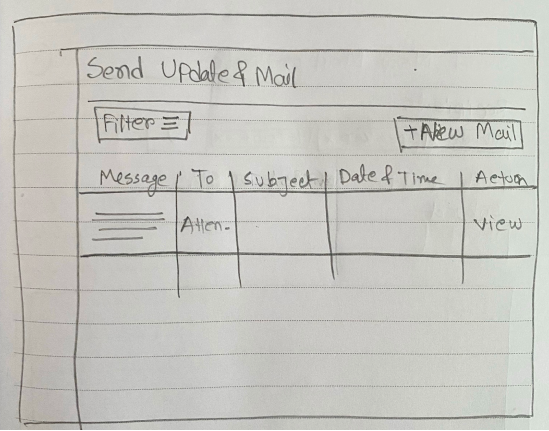 Send Update & Mail
Filter
+ New Mail
Message To Subject Date & Time Action
Atten-
View